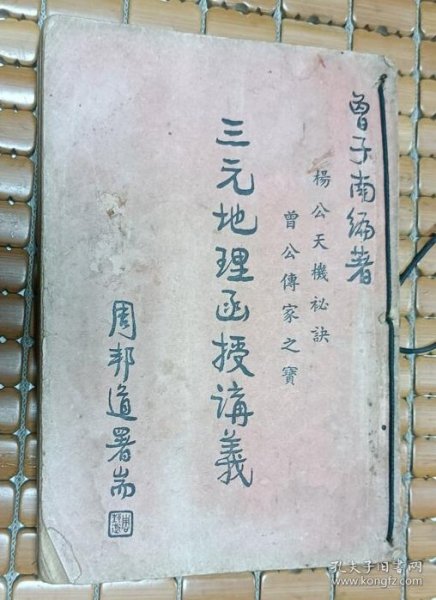 曾子南編著
楊公天機秘訣
曾公傳家之寶
三元地理函授講義
周邦道署耑
孔夫子旧书网
www.kongfz.com